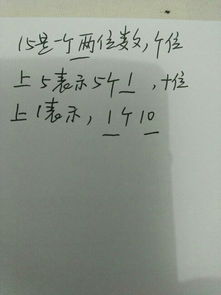 15是一个两位数,个位
上5表示5个1,十位
上1表示,1个10